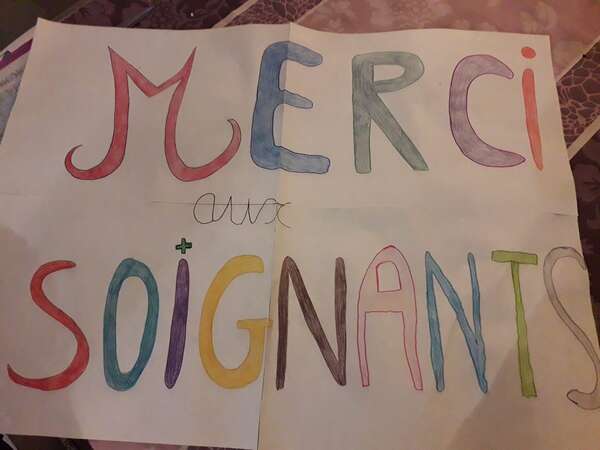 MERCi
aux
SOiGNANTS